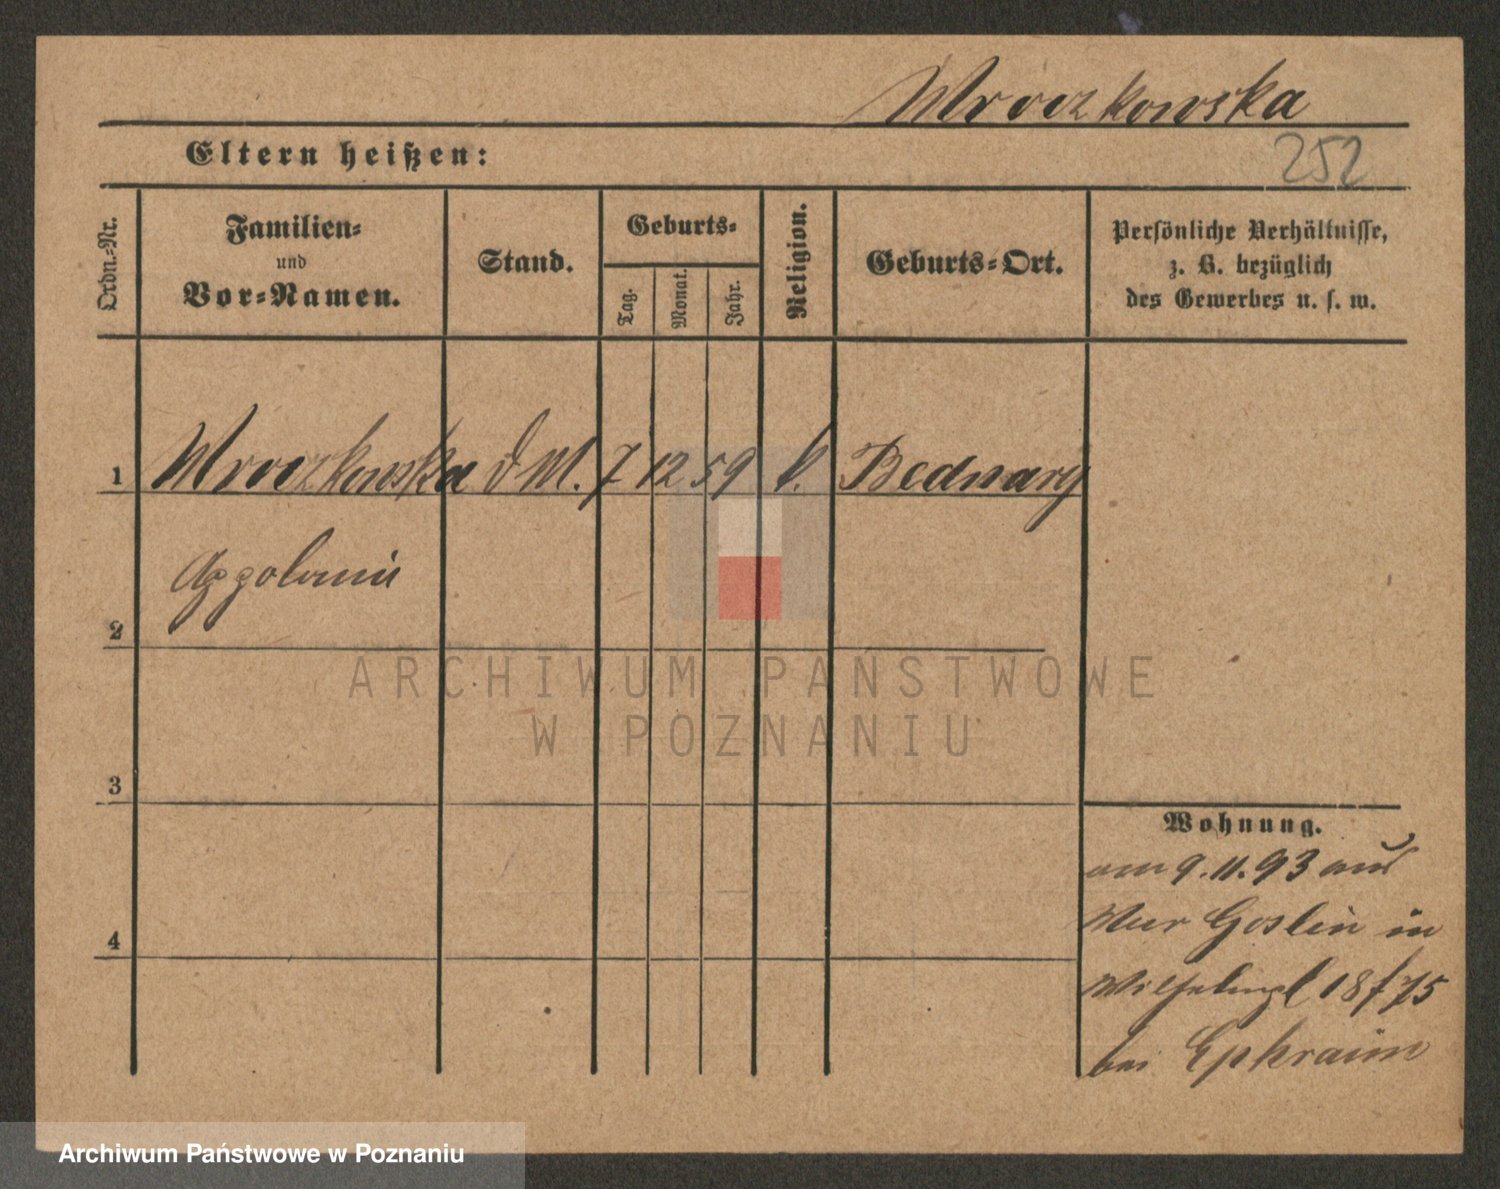 Mroczkowska
252
Eltern heißen:
Ordn.-Nr.
Familien-
und
Vor-Namen.
Stand.
Geburts-
Tag.
Monat.
Jahr.
Religion.
Geburts-Ort.
Persönliche Verhältnisse,
z. B. bezüglich
des Gewerbes u. s. w.
1 Mroczkowska d M. 7 12 59 k. Bednary
Appolonie
2
3
4
Wohnung.
am 9.11.93 aus
Mur Goslin in
Wilhelmpl 18 f 75
bei Ephraim
ARCHIWUM PAŃSTWOWE
W POZNANIU
Archiwum Państwowe w Poznaniu